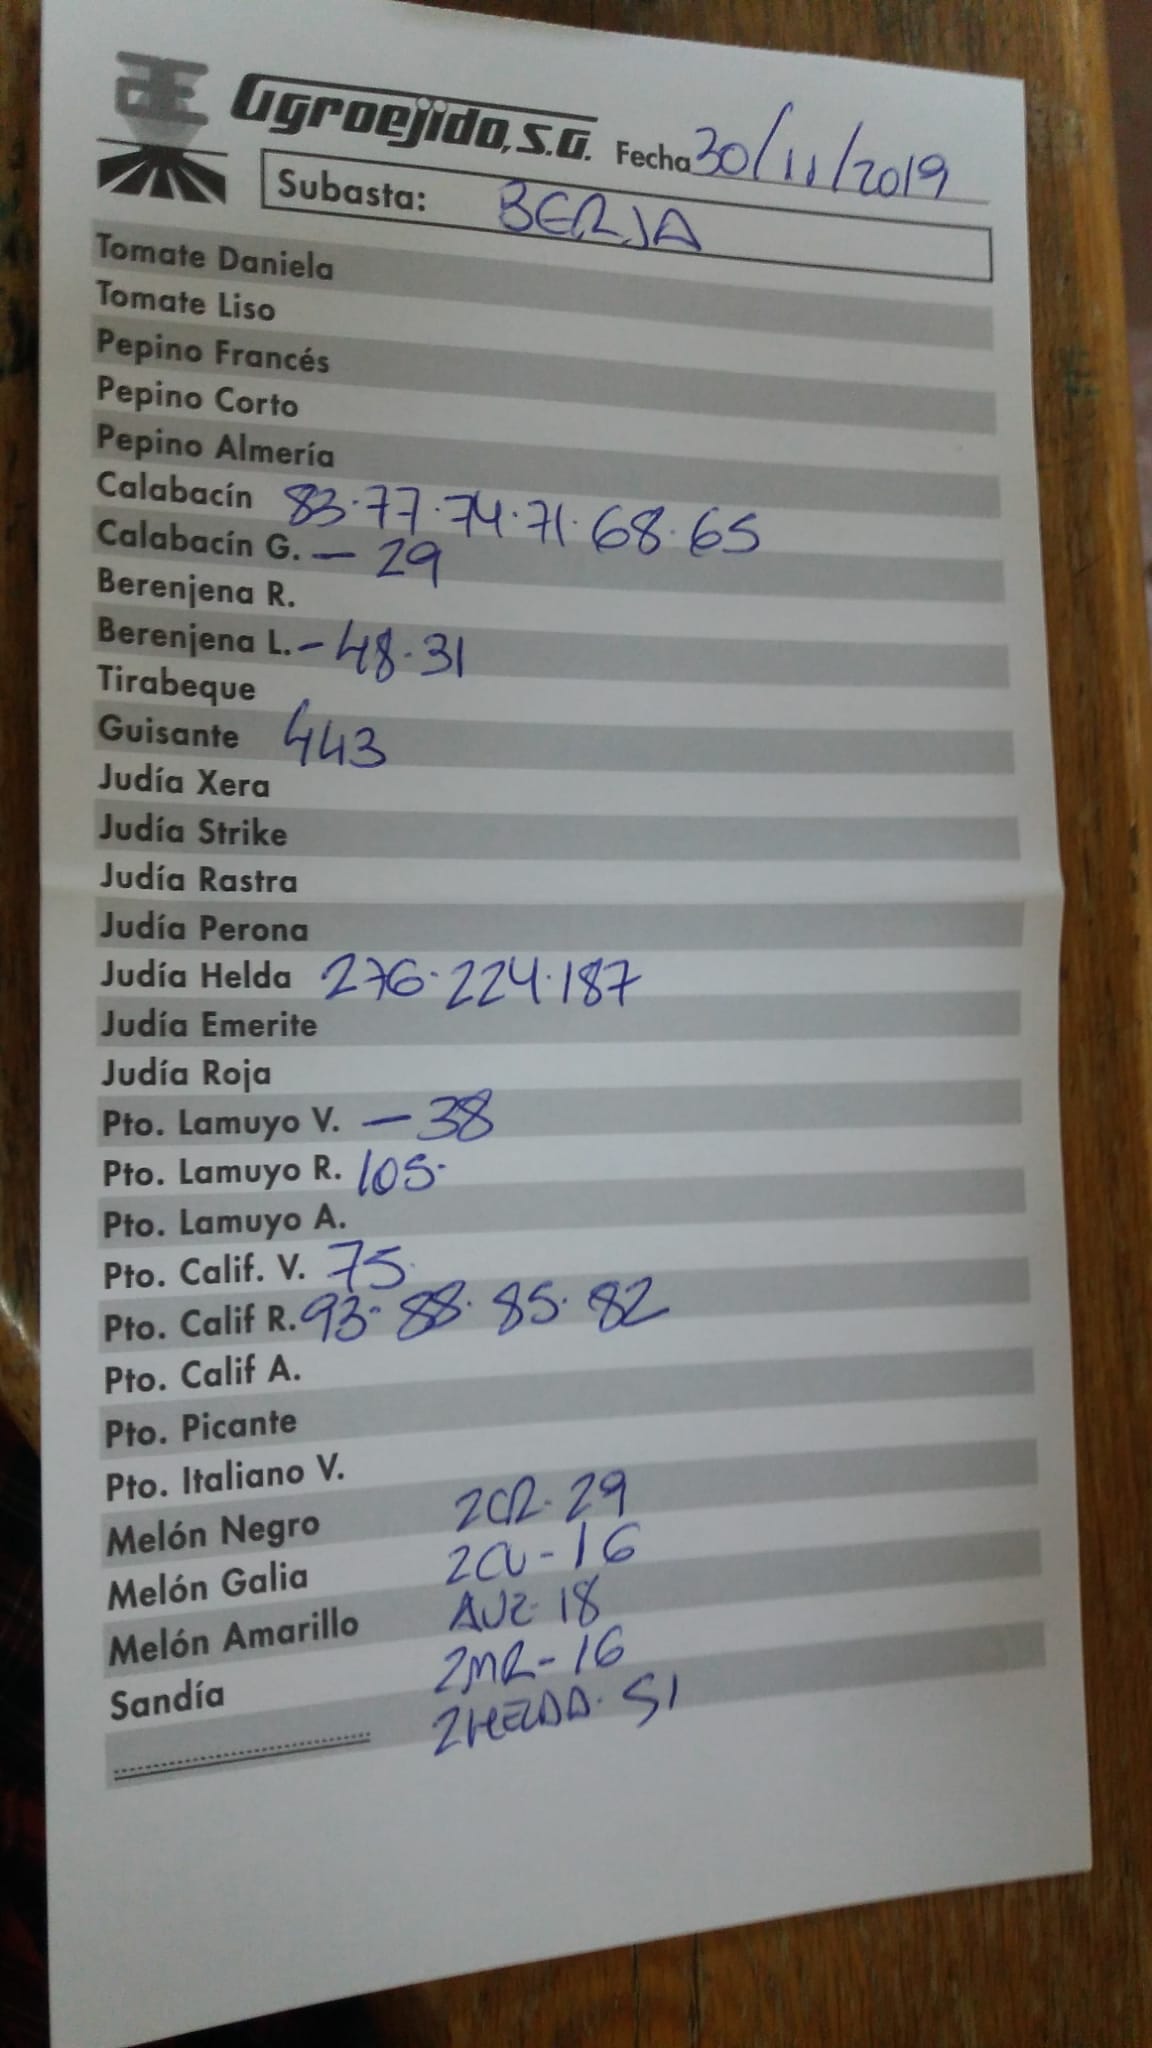 Agroejido, S.A. Fecha 30/11/2019
Subasta: BERJA
Tomate Daniela
Tomate Liso
Pepino Francés
Pepino Corto
Pepino Almería
Calabacín 83·77·74·71·68·65
Calabacín G. - 29
Berenjena R.
Berenjena L. - 48·31
Tirabeque
Guisante 443
Judía Xera
Judía Strike
Judía Rastra
Judía Perona
Judía Helda 276·224·187
Judía Emerite
Judía Roja
Pto. Lamuyo V. - 38
Pto. Lamuyo R. 105·
Pto. Lamuyo A.
Pto. Calif. V. 75·
Pto. Calif R. 93·88·85·82
Pto. Calif A.
Pto. Picante
Pto. Italiano V.
Melón Negro 2CR·29
Melón Galia 2CV-16
Melón Amarillo 18
Sandía 2MR-16
2HELDA·51